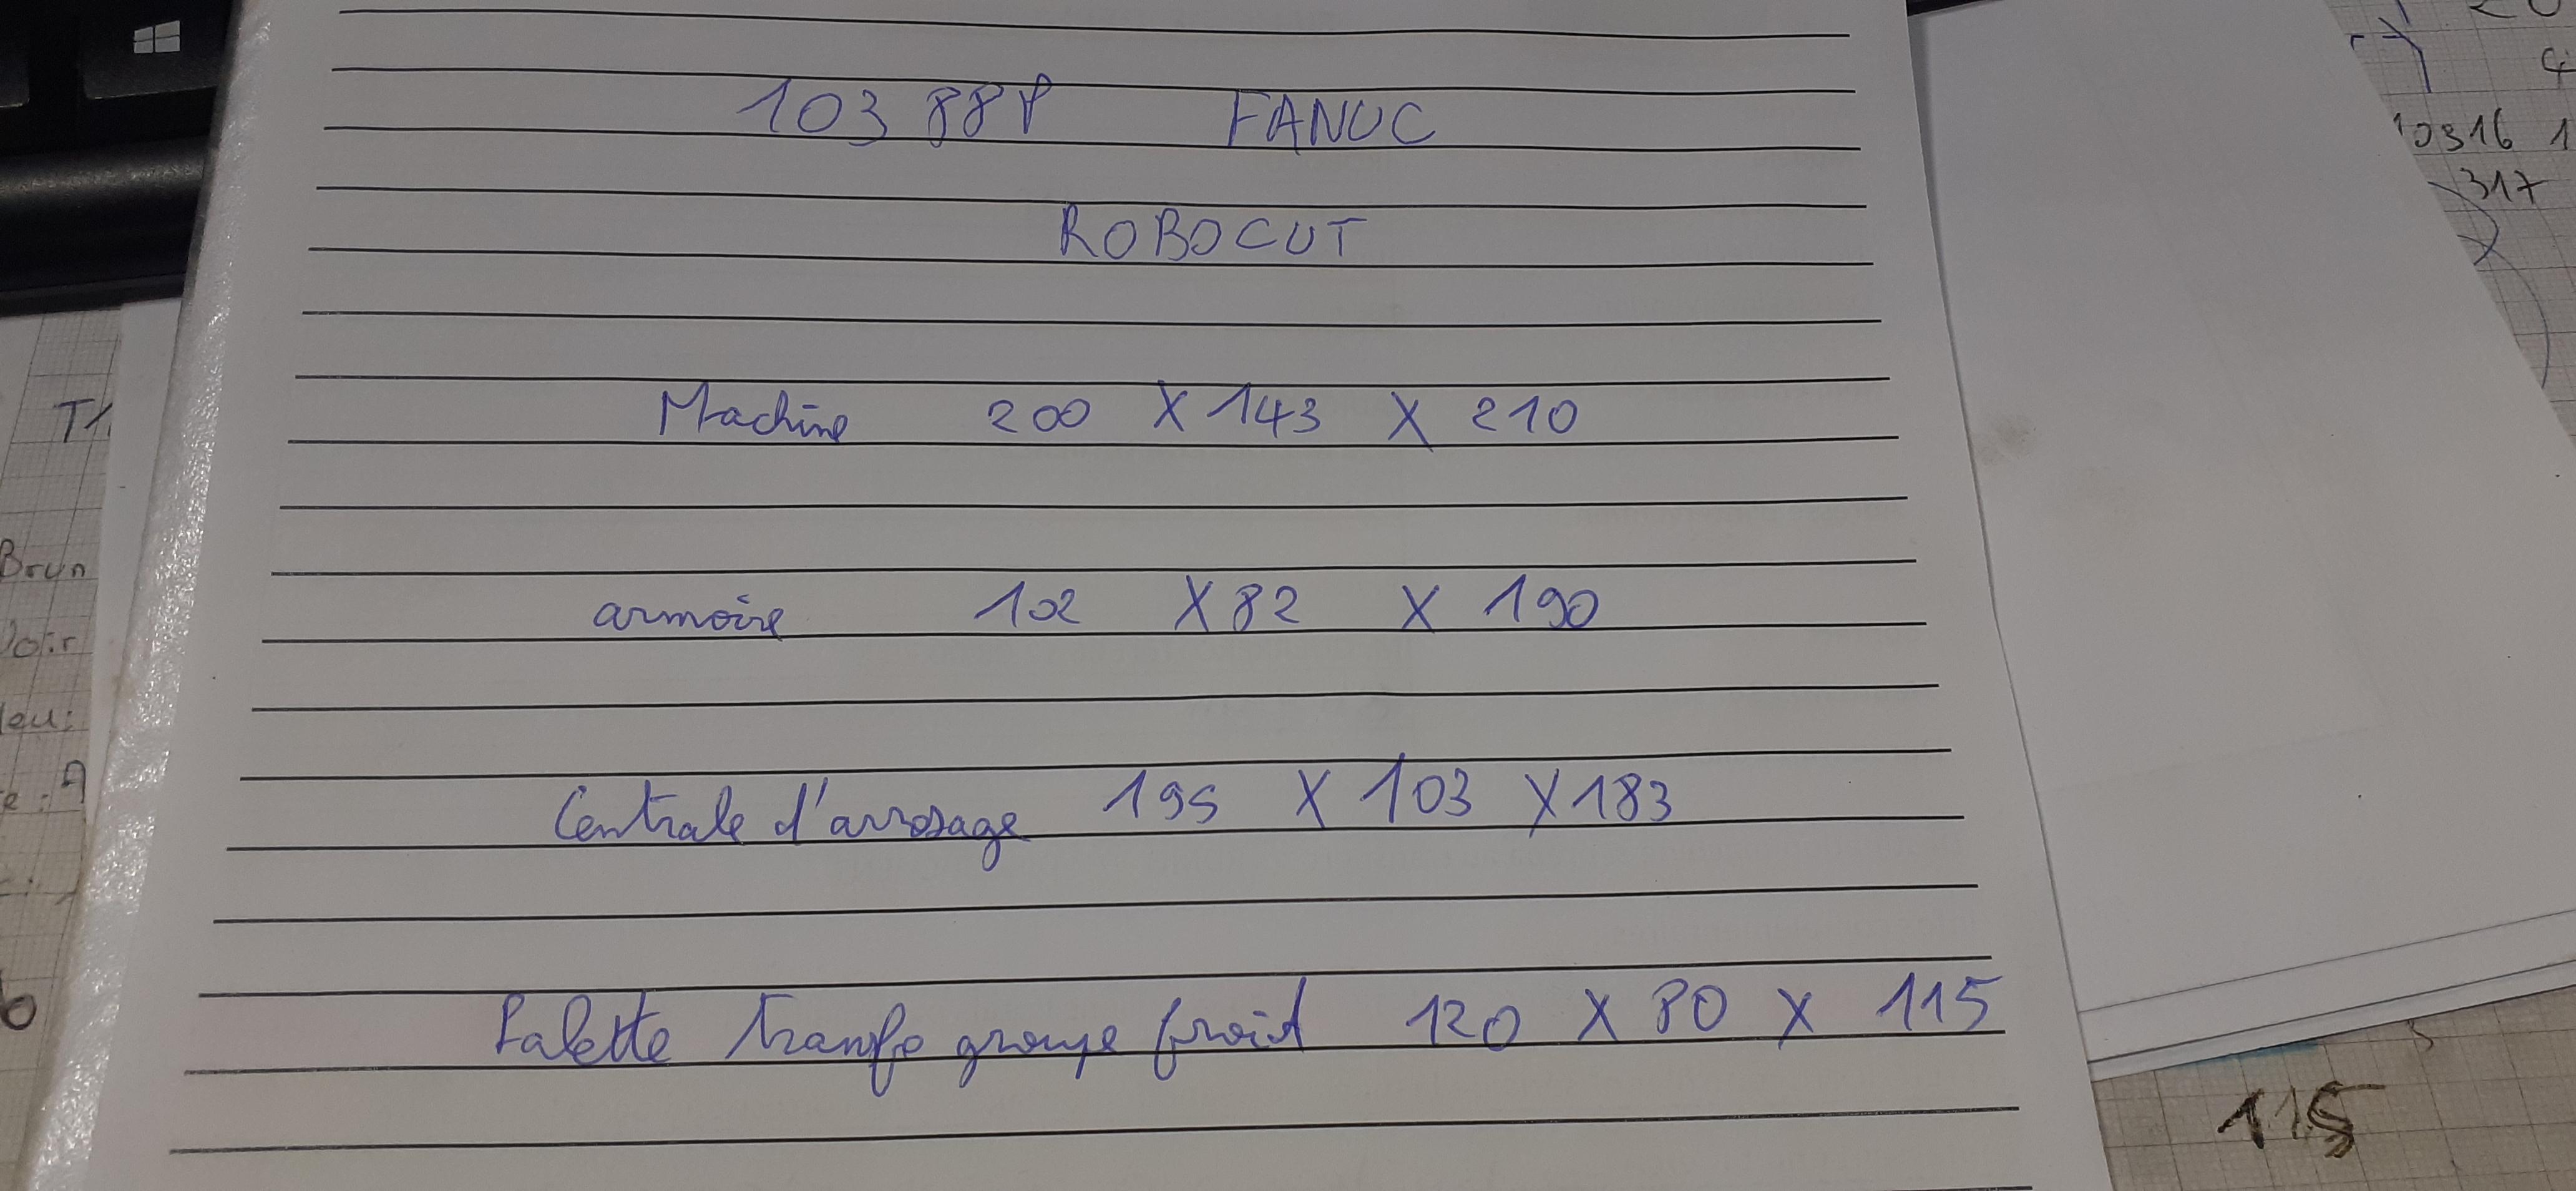 103 88P FANUC
ROBOCUT
Machine 200 X 143 X 210
armoire 102 X 82 X 190
Centrale d'arrosage 195 X 103 X 183
Palette transfo groupe froid 120 X 80 X 115
10316 1
317
T1
Brun
115